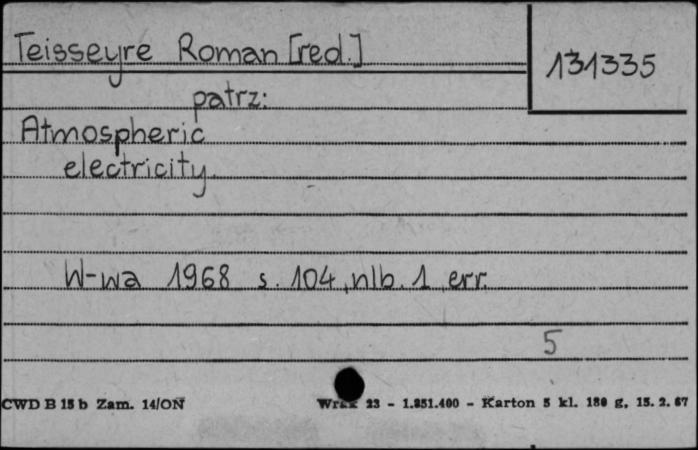 Teisseyre Roman [red.]
131335
patrz:
Atmospheric
electricity.
W-wa 1968 s. 104, nlb. 1, err.
5
CWD B 15 b Zam. 14/ON
23 - 1.251.400 - Karton 5 kl. 180 g, 15. 2. 67